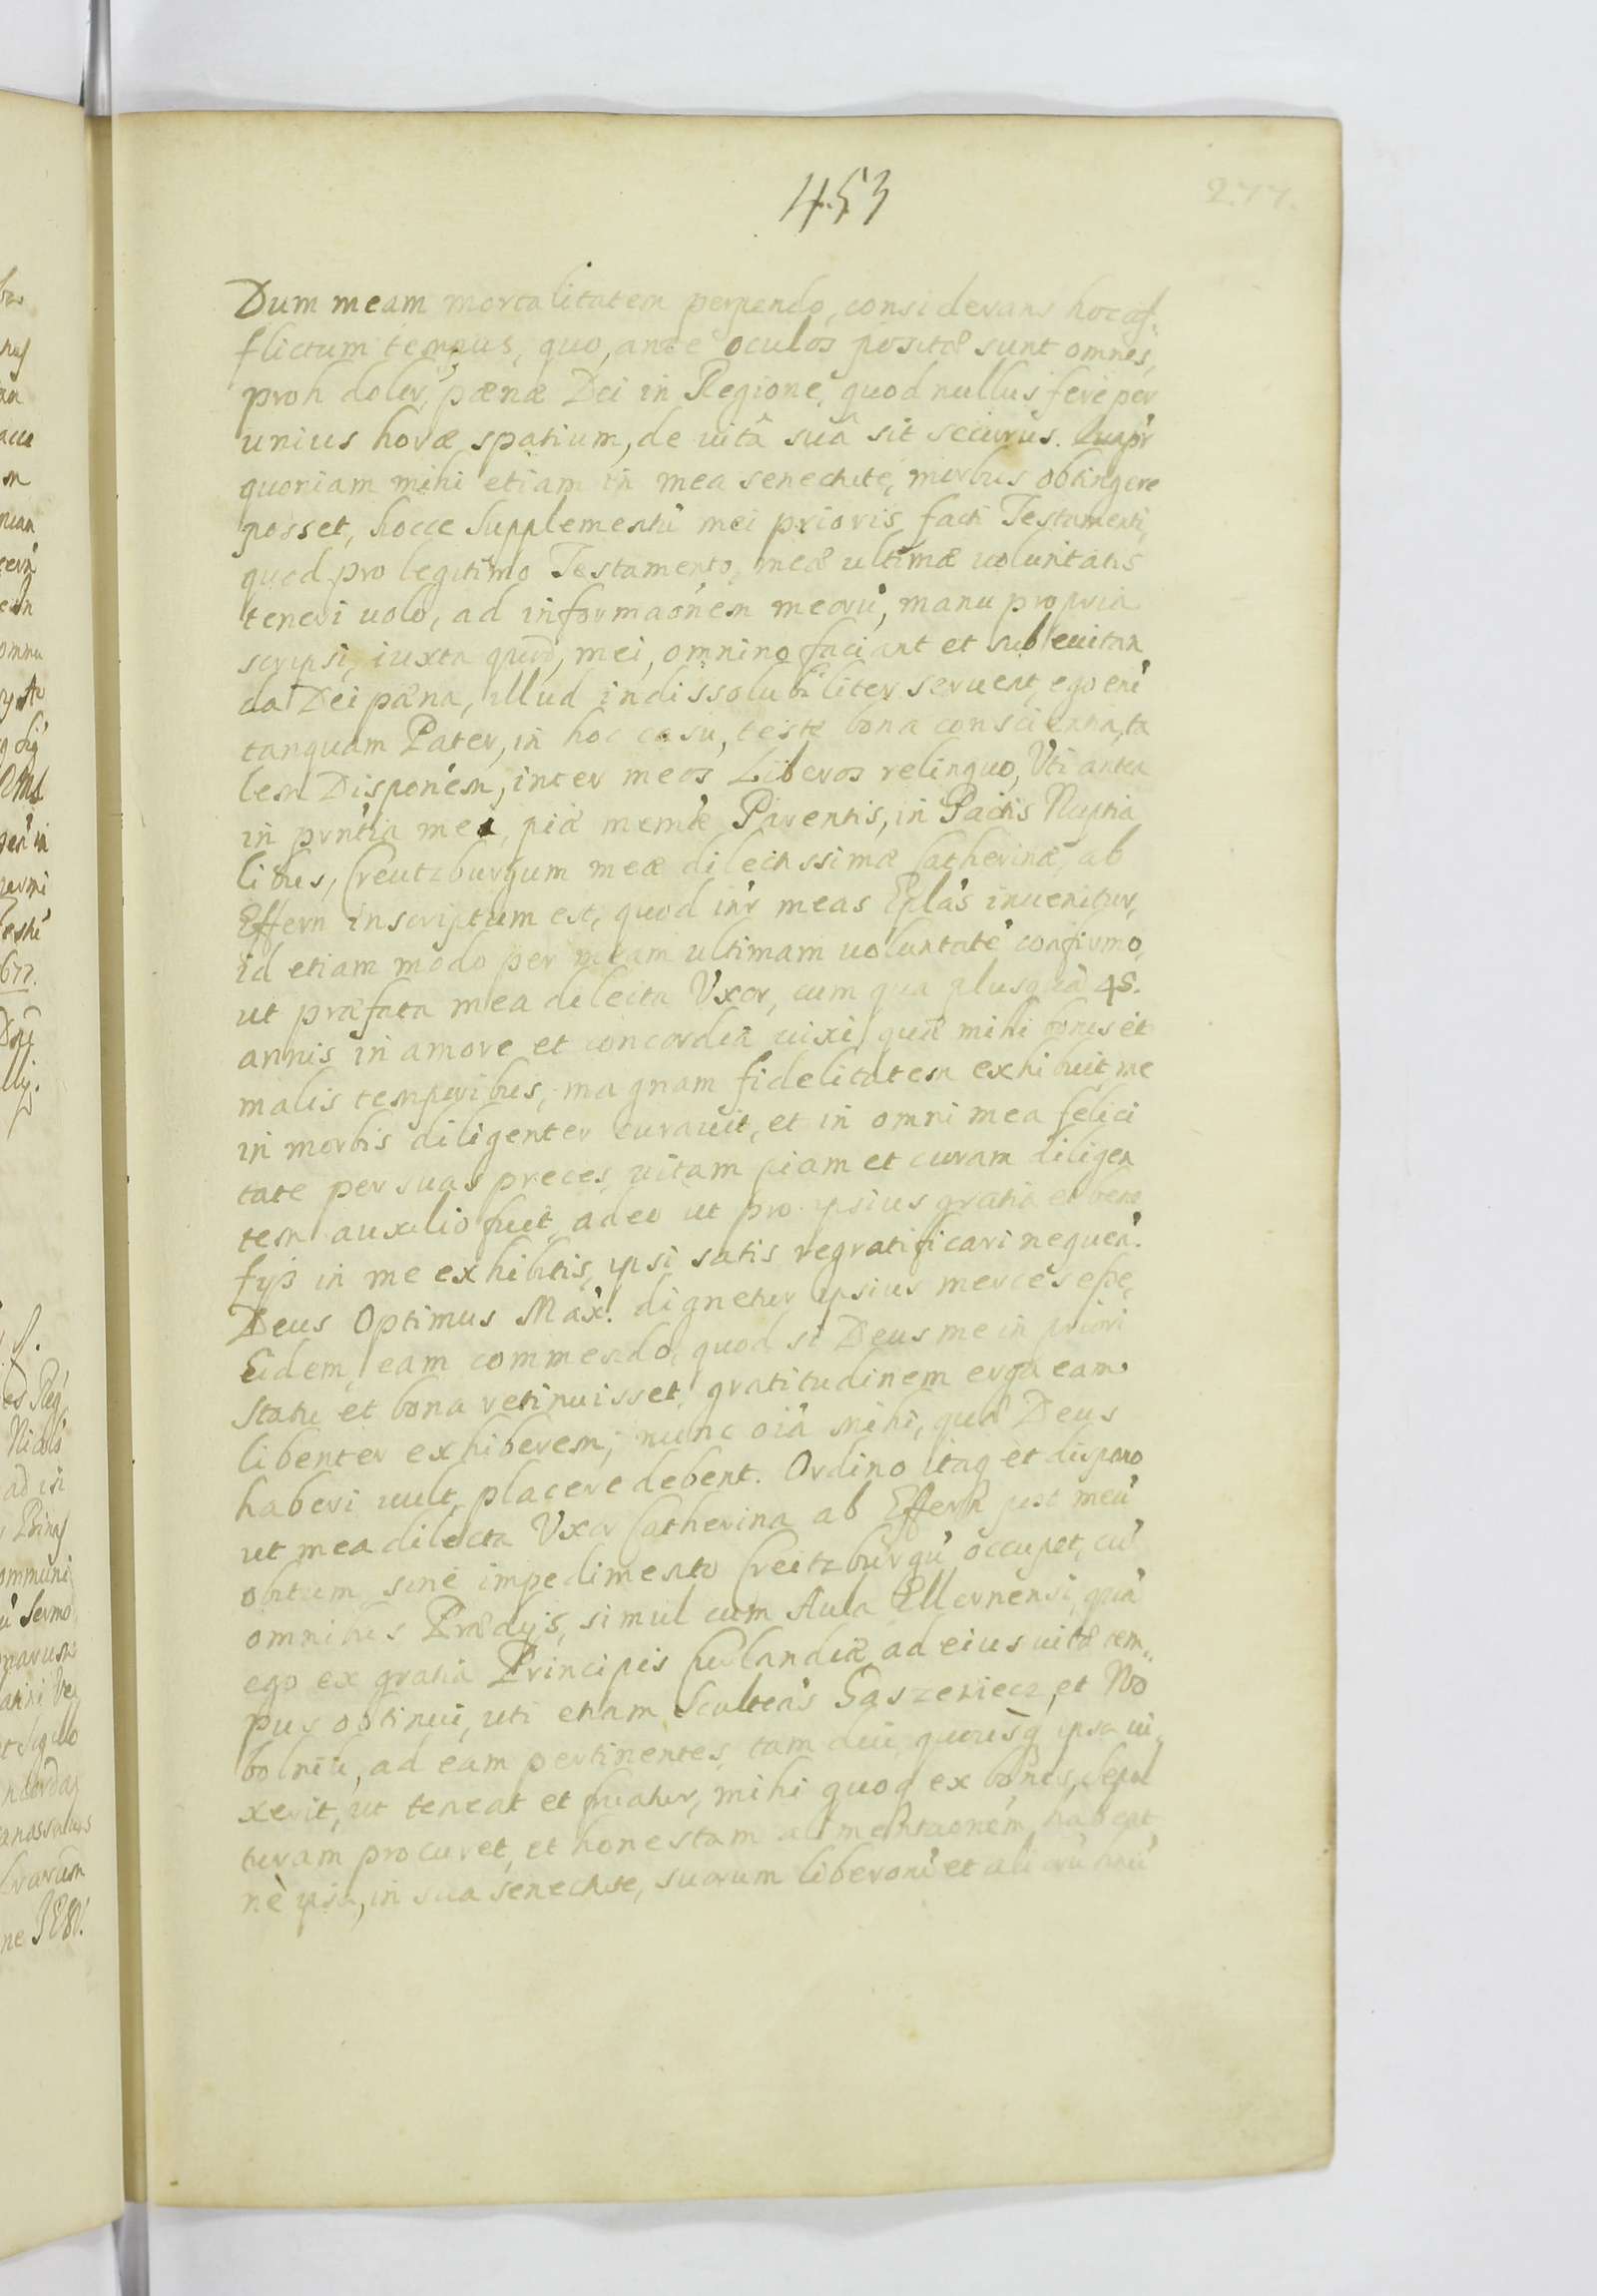 453
277.
Dum meam mortalitatem perpendo, considerans hoc af-
flictum tempus, quo, ante oculos positæ sunt omnes,
proh dolor, pænæ Dei in Regione, quod nullus feré per
unius horæ spatium, de uitâ suâ sit securus. Quapr
quoniam mihi etiam in mea senectute, morbus obtingere
posset, hocce Supplementũ mei prioris facti Testamenti,
quod pro legitimo Testamento, meæ ultimæ uoluntatis
teneri uolo, ad informaõnem meorũ, manu propria
scripsi, iuxta quod, mei, omnino faciant et sub euitan
da Dei pæna, illud indissolubiliter seruent, ego enĩ
tanquam Pater, in hoc casu, teste bona conscientia, ta
lem Disponẽm, inter meos Liberos relinquo, Vti antea
in prñtia mei, piæ memoæ Parentis, in Pactis Nuptia
libus, Creutzburgum meæ dilectissimæ Catherinæ, ab
Effern inscriptum est, quod inr̃ meas Eplãs inuenitur,
id etiam modo per meam ultimam uoluntatẽ confirmo,
ut præfata mea dilecta Vxor, cum qua plusquã 45.
annis in amore et concordia uixi, quæ mihi bonis et
malis temporibus, magnam fidelitatem exhibuit, me
in morbis diligenter curauit, et in omni mea felici
tate per suas preces, uitam piam et curam diligen
tem auxilio fuit, adeo ut pro ipsius gratia et bene
fijs in me exhibitis, ipsi satis regratificari nequeã.
Deus Optimus Max! dignetur ipsius merces eße,
Eidem, eam commendo, quod si Deus me in priori
statu et bona retinuisset, gratitudinem erga eam
libenter exhiberem, nunc oiã mihi, quæ Deus
haberi uult placere debent. Ordino itaq et dispono
ut mea dilecta Vxor Catherina ab Effern post meũ
obitum sine impedimento Creitzburgũ occupet, cũ
omnibus Prædijs, simul cum Aula Ellernensi, quã
ego ex gratia Principis Curlandiæ ad eius uitæ tem-
pus obtinui, uti etiam Scultetãs Gaszeniecz, et No
bolniki, ad eam pertinentes, tam diu, quousq ipsa ui
xerit, ut teneat et fruatur, mihi quoq ex bonis, sepul
turam procuret, et honestam alimentaõnem, habeat
nè ipsa, in sua senectute, suorum liberorũ et aliorũ